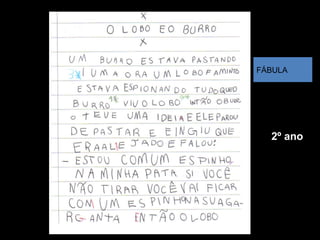 X
O LOBO E O BURRO
X
UM BURRO ESTAVA PASTANDO
I UMA ORA UM LOBO FAMINTO
ESTAVA ESPIONANDO TUDO QUE O
BURRO VIU O LOBO INTÃO O BURR
O TEVE UMA IDEIA E ELE PAROU
DE PASTAR E FINGIU QUE
ERA ALEJADO E FALOU:
– ESTOU COM UM ESPINHO
NA MINHA PATA SI VOCÊ
NÃO TIRAR VOCÊ VAI FICAR
COM UM ESPINHO NA SUA GA-
RGANTA ENTÃO O LOBO
FÁBULA
2º ano